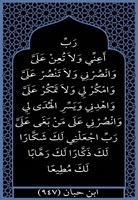 رَبِّ
أَعِنِّي وَلاَ تُعِنْ عَلَيَّ
وَانْصُرْنِي وَلاَ تَنْصُرْ عَلَيَّ
وَامْكُرْ لِي وَلاَ تَمْكُرْ عَلَيَّ
وَاهْدِنِي وَيَسِّرِ الْهُدَى لِي
وَانْصُرْنِي عَلَى مَنْ بَغَى عَلَيَّ
رَبِّ اجْعَلْنِي لَكَ شَكَّارًا
لَكَ ذَكَّارًا لَكَ رَهَّابًا
لَكَ مُطِيعًا
ابن حبان (٩٤٧)